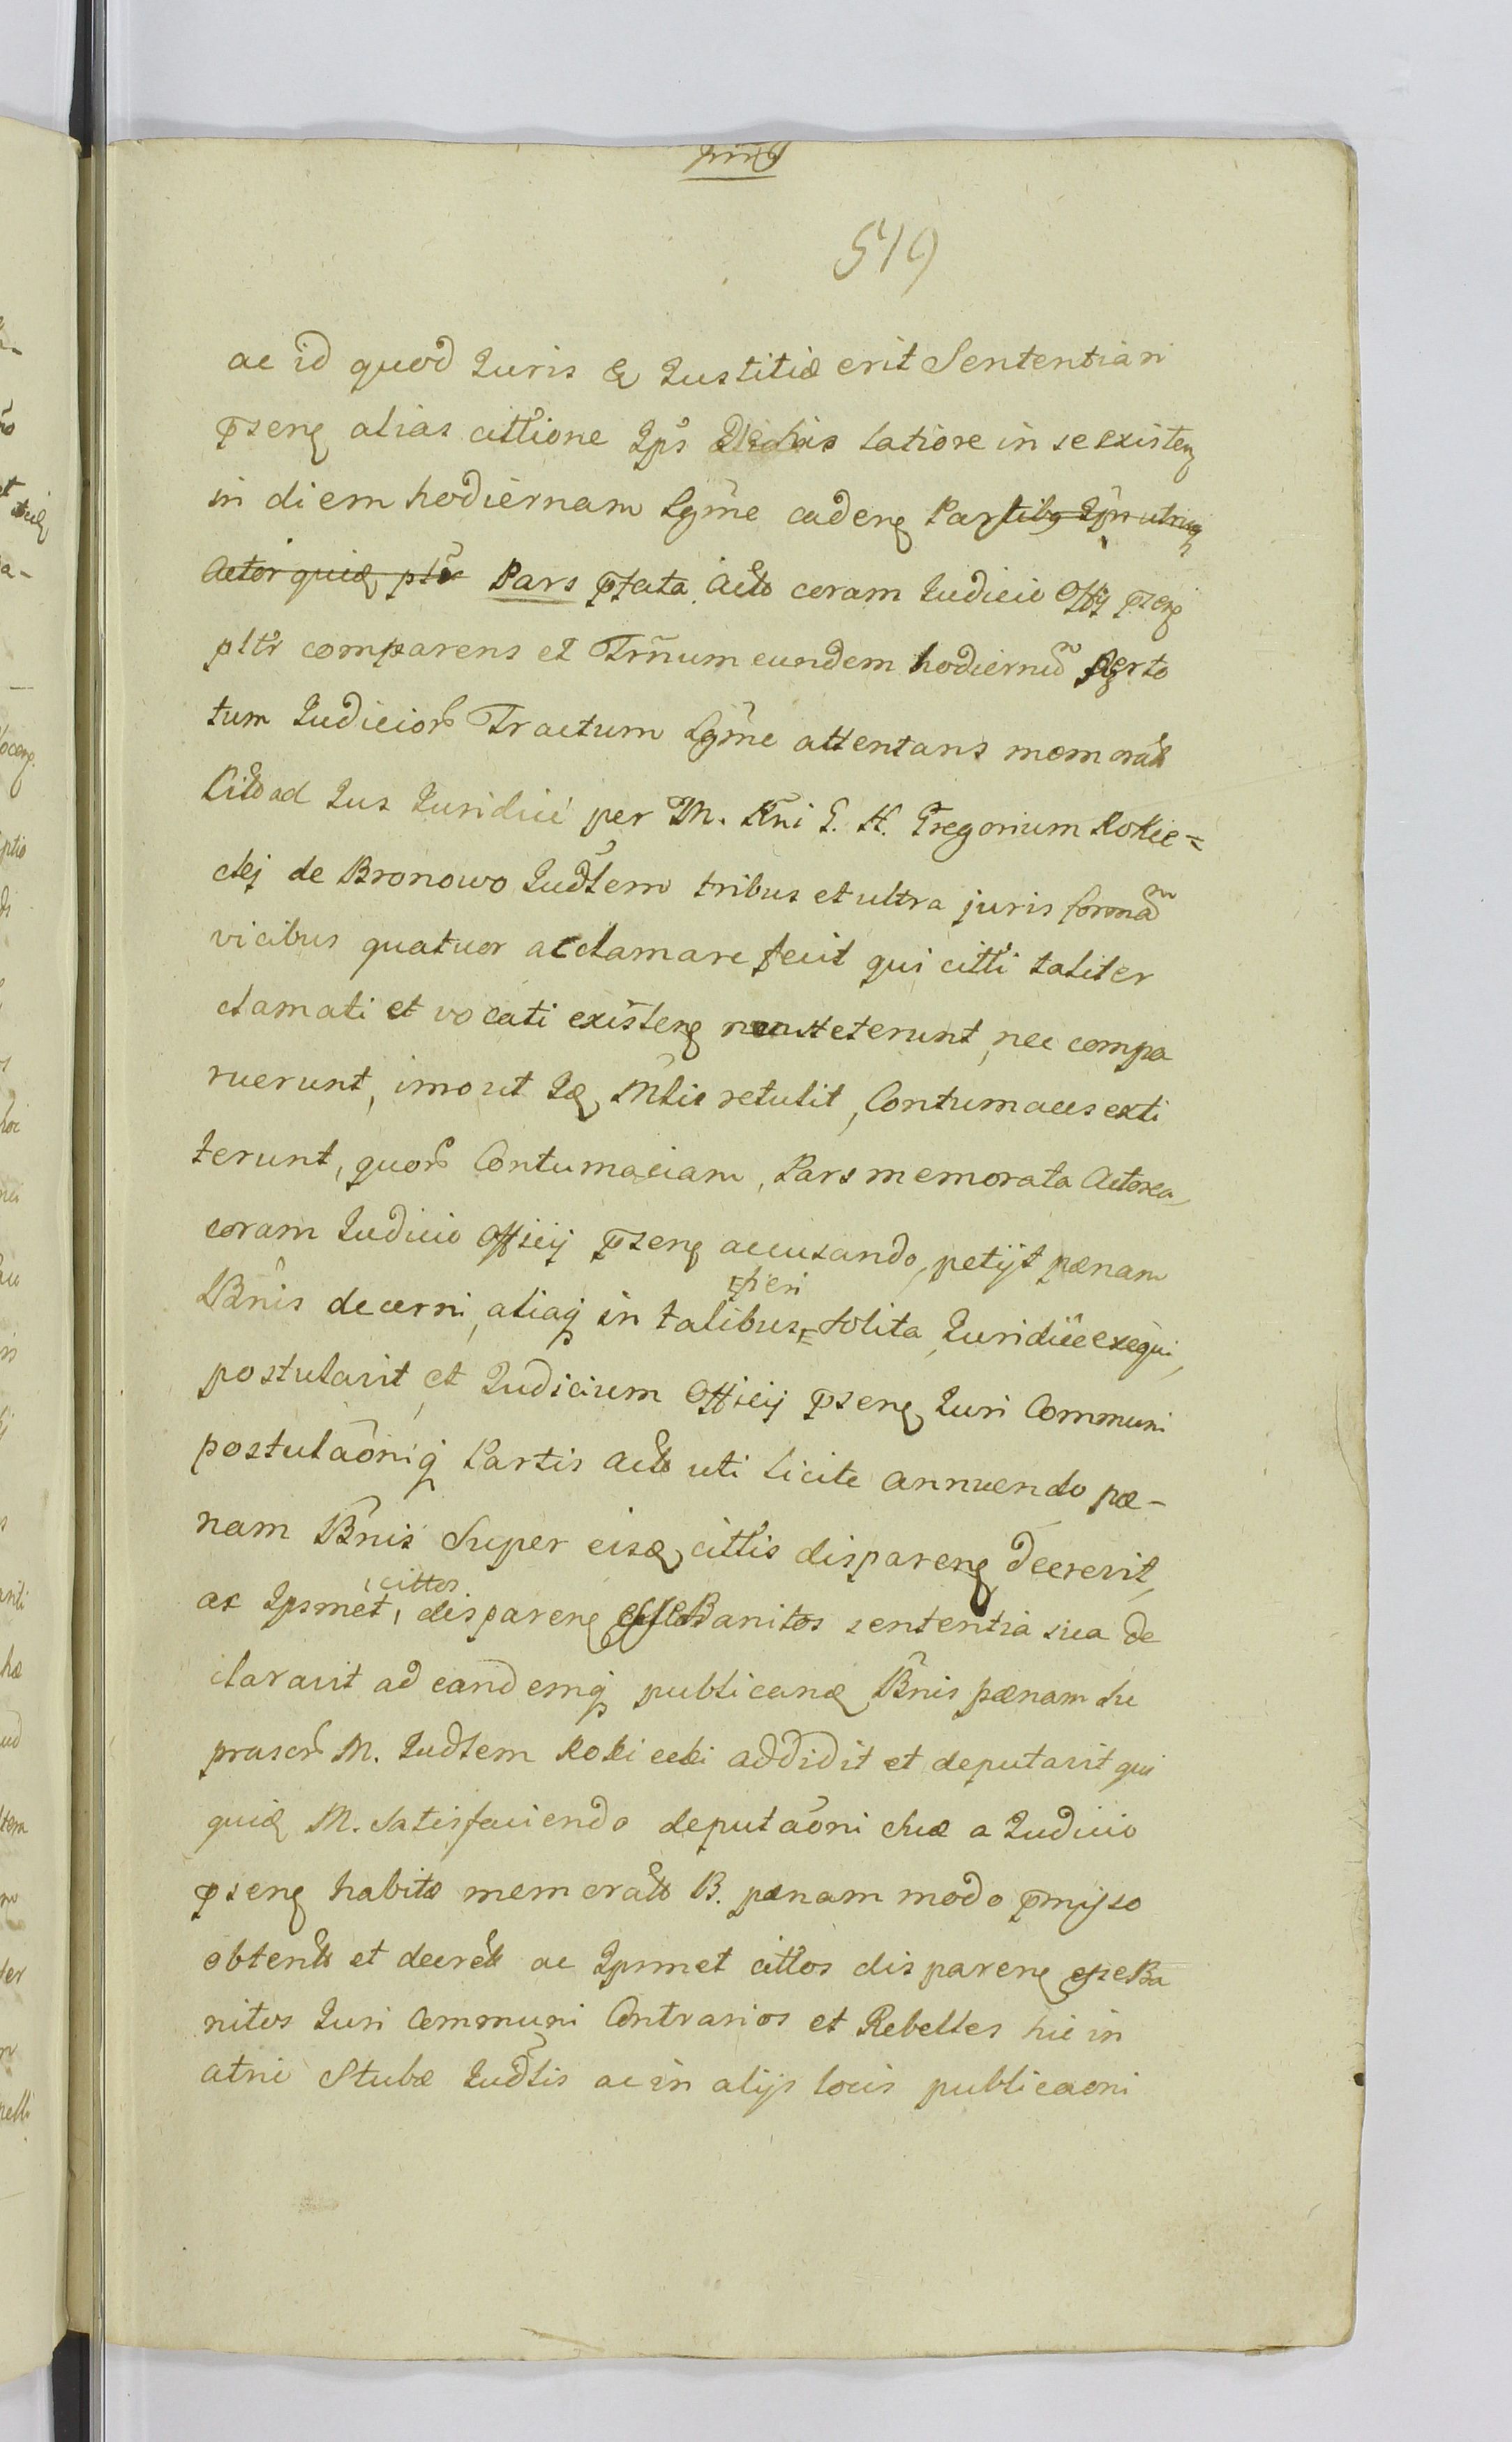 519
ac id quod Juris & Justitiæ erit Sententiari
p̄senq̨ alias citt̃ione Jps̃ latiore in se existenq̨
in diem hodiernam Lgm̃e cadenq̨ Partibq̨ Jps̃ utriusq̨
Actor quidq̨ pltr̃ Pars p̄fata Act̃o coram Judicio Offij p̄senq̨
pltr̃ comparens et Trm̃num eundem hodiernũ per to
tum Judicior̃ Tractum Lgm̃e attentans memorat̃o
Citt̃o ad Jus Juridicè per M. Rñi G. N. Gregorium Rokic=
ckj de Bronowo Jud̃lem tribus et ultra juris formam̃
vicibus quatuor acclamare fecit qui citt̃i taliter
clamati et vocati existenq̨ non steterunt, nec compa
ruerunt, imo ut Jdq̨ Mlis̃ retulit, Contumaces exti
terunt, quor̃ Contumaciam, Pars memorata Actorea,
coram Judicio Officij p̄senq̨ accusando, petijt pænam
Bñis decerni, aliaq̨ in talibus, fieri solita, Juridicè exequi,
postulavit, et Judicium Officij p̄senq̨ Juri Communi
postulaõniq̨ Partis Act̃o uti licite annuendo pæ-
nam Bñis Super eisdq̨ citt̃is disparenq̨ decrevit,
ac Ipsmet, citt̃os disparenq̨ esse Banitos sententia sua de
claravit ad eandemq̨ publicandq̨ Bñis pænam su
prascr̃ M. Jud̃lem Rokicki addidit et deputavit qui
quidq̨ M. Satisfaciendo deputaõni suæ a Judicio
p̄senq̨ habitæ memorat̃o B. pænam modo p̄misso
obtent̃o et decret̃o ac Ipsmet citt̃os disparenq̨ esse Ba
nitos Juri Communi Contrarios et Rebelles hic in
atrio Stubæ Jud̃lis ac in alijs locis publicaõni